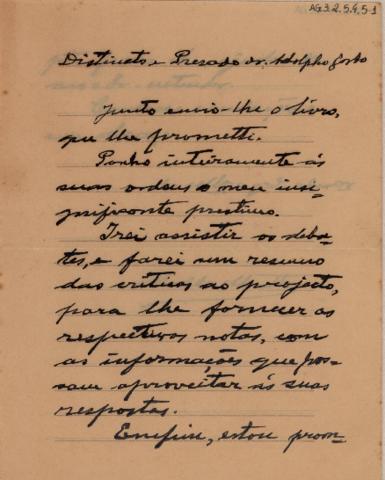 AG3.2.5.4.5-1
Distincto e Presado dr. Adolpho Gordo
Junto envio-lhe o livro,
que lhe prometti.
Ponho inteiramente ás
suas ordens o meu insi-
gnificante prestimo.
Irei assistir os deba-
tes, e farei um resumo
das criticas ao projecto,
para lhe fornecer as
respectivas notas, com
as informações que pos-
sam aproveitar ás suas
respostas.
Enfim, estou prom-